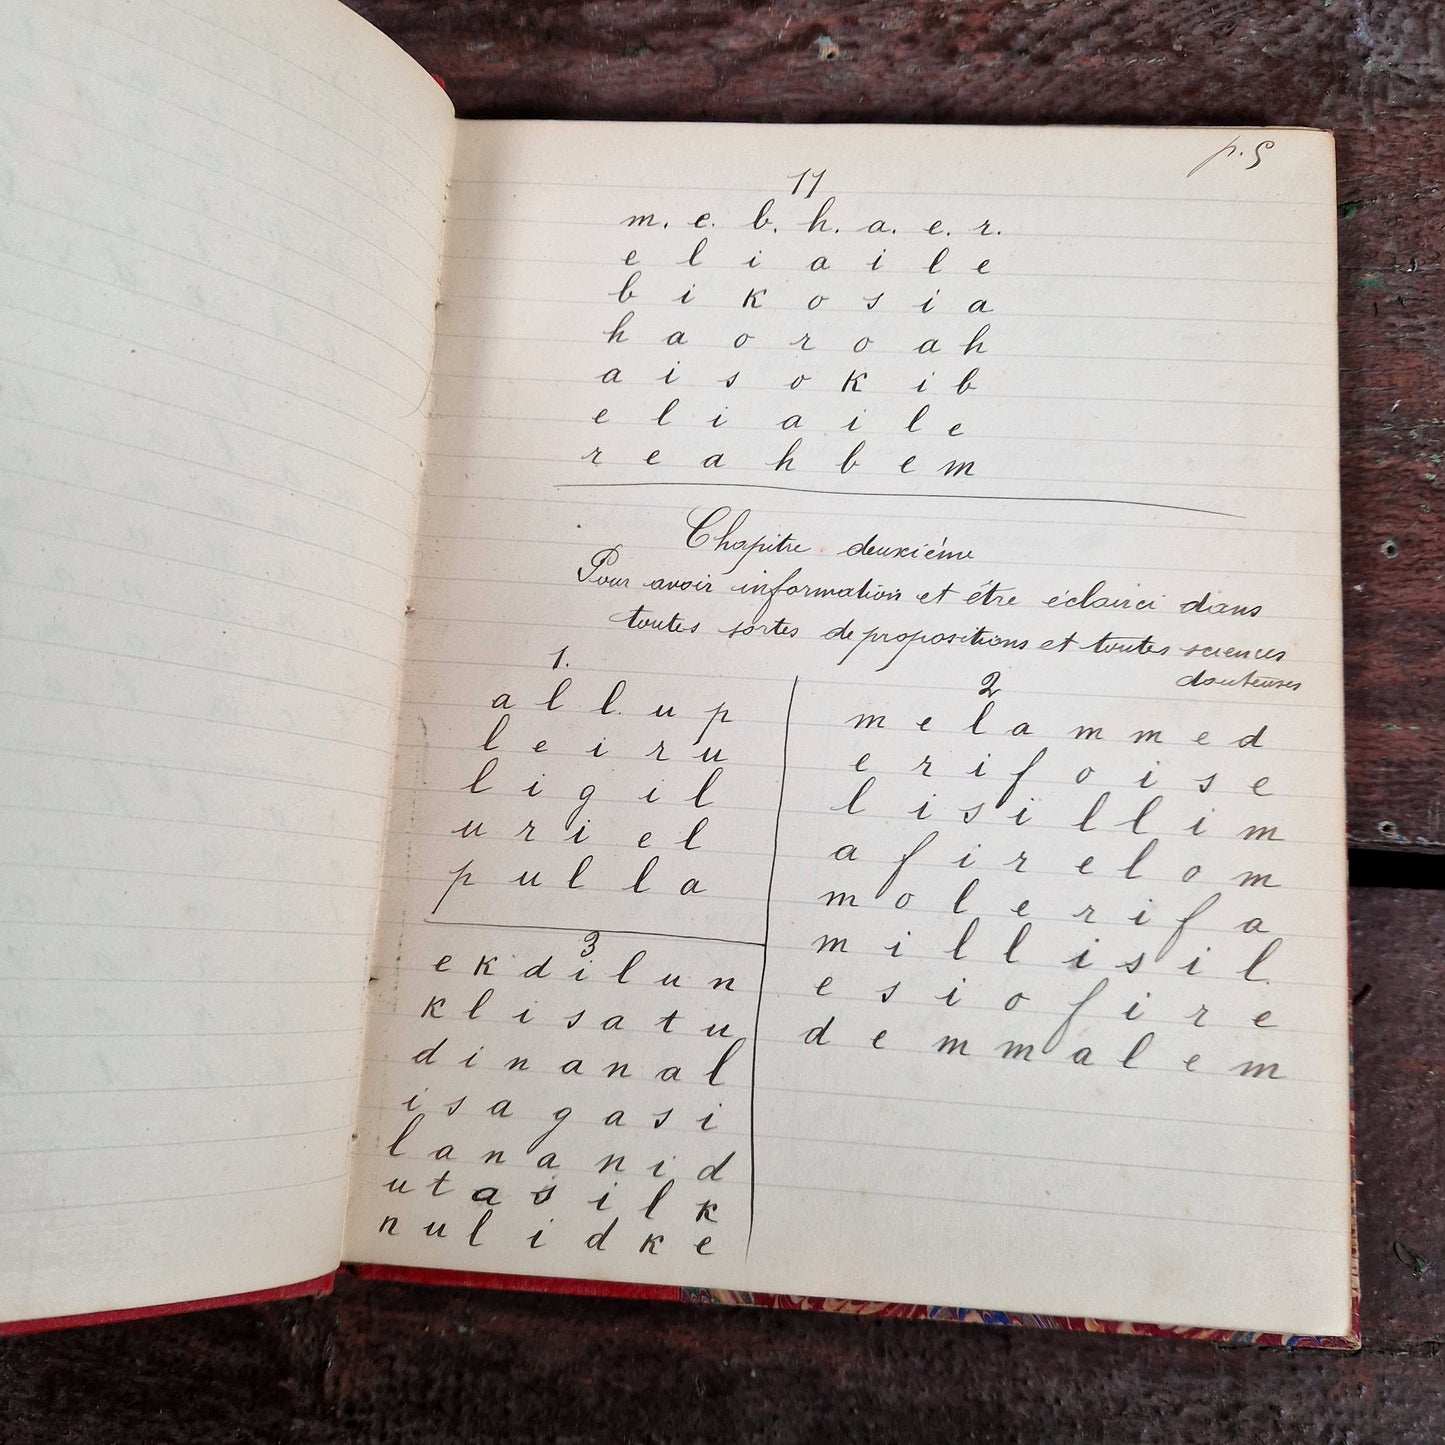 p. 5
11
m. e. b. h. a. e. r.
e l i a i l e
b i k o s i a
h a o r o a h
a i s o k i b
e l i a i l e
r e a h b e m
Chapitre deuxiéme
Pour avoir information et étre éclairci dans
toutes sortes de propositions et toutes sciences
douteuses
1.
a l l u p
l e i r u
l i g i l
u r i e l
p u l l a
3
e k d i l u n
k l i s a t u
d i n a n a l
i s a g a s i
l a n a n i d
u t a s i l k
n u l i d k e
2
m e l a m m e d
e r i f o i s e
l i s i l l i m
a f i r e l o m
m o l e r i f a
m i l l i s i l
e s i o f i r e
d e m m a l e m